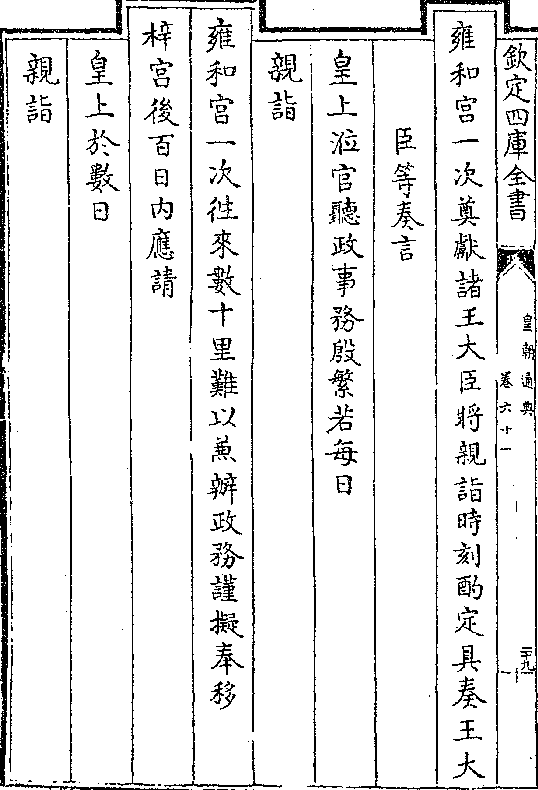 欽定四庫全書
皇朝通典
卷六十一
二十九
雍和宮一次奠獻諸王大臣將親詣時刻酌定具奏王大
臣等奏言
皇上涖官聽政事務殷繁若每日
親詣
雍和宮一次往來數十里難以兼辦政務謹擬奉移
梓宮後百日内應請
皇上於數日
親詣